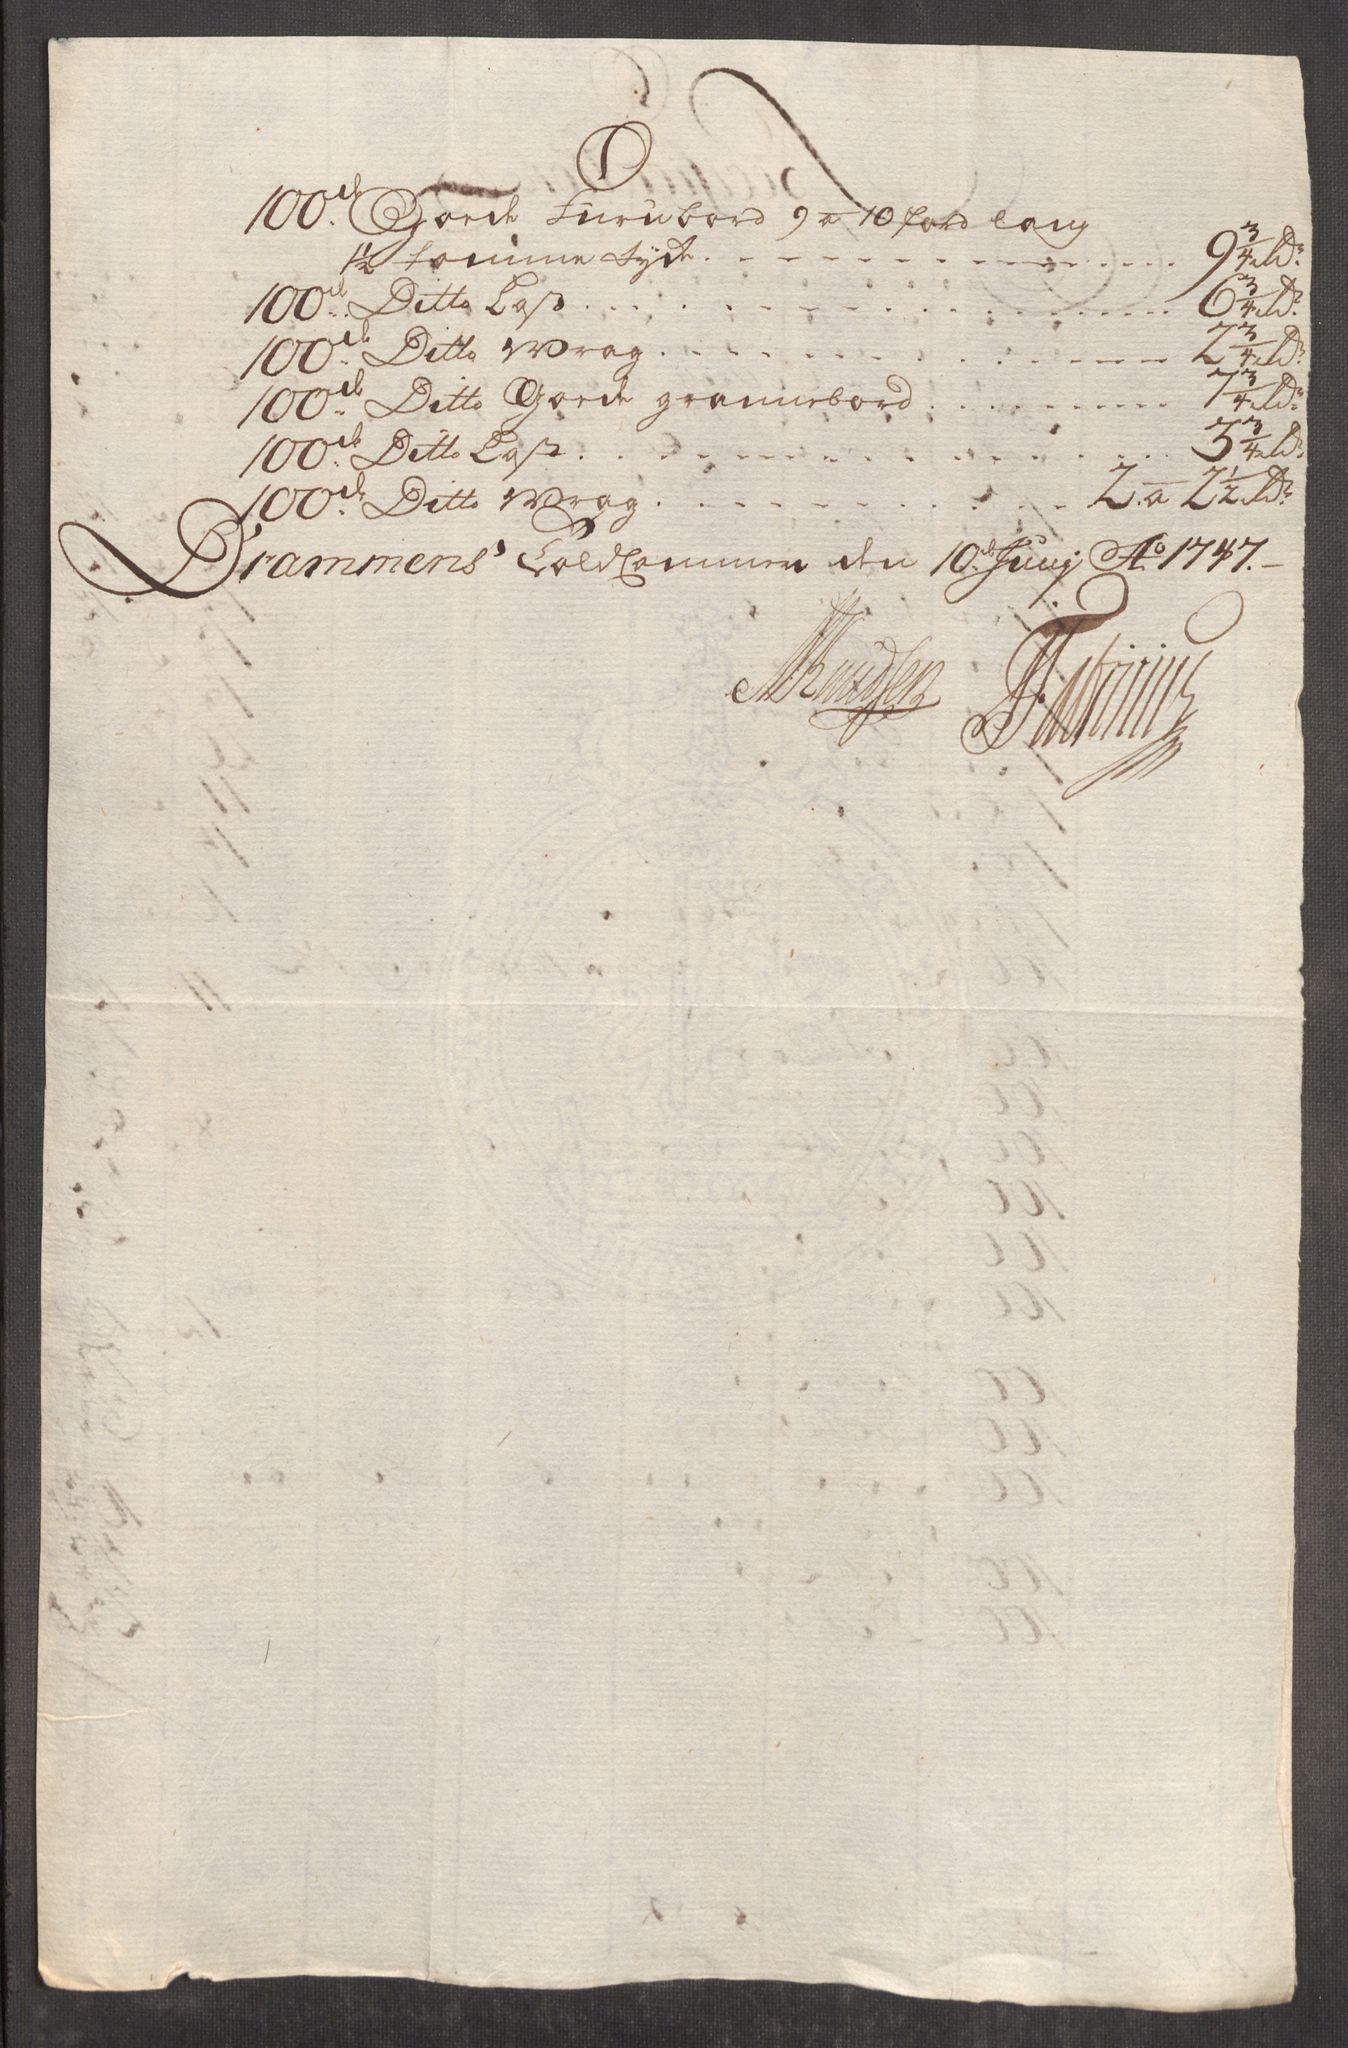 100de Goede Furubord 9 a 10 foed lang
1½ tomme tyck 9¾ Rdr
100de Ditto Laß 6¾ Rdr
100de Ditto Wrag 2¾ Rdr
100de Ditto Goede grannebord 7¾ Rdr
100de Ditto Laß 3¾ Rdr
100de Ditto Wrag 2 a 2½ Rdr
Drammens Toldkammer den 10de Junij Ao 1747.
Knudsen Fabritius